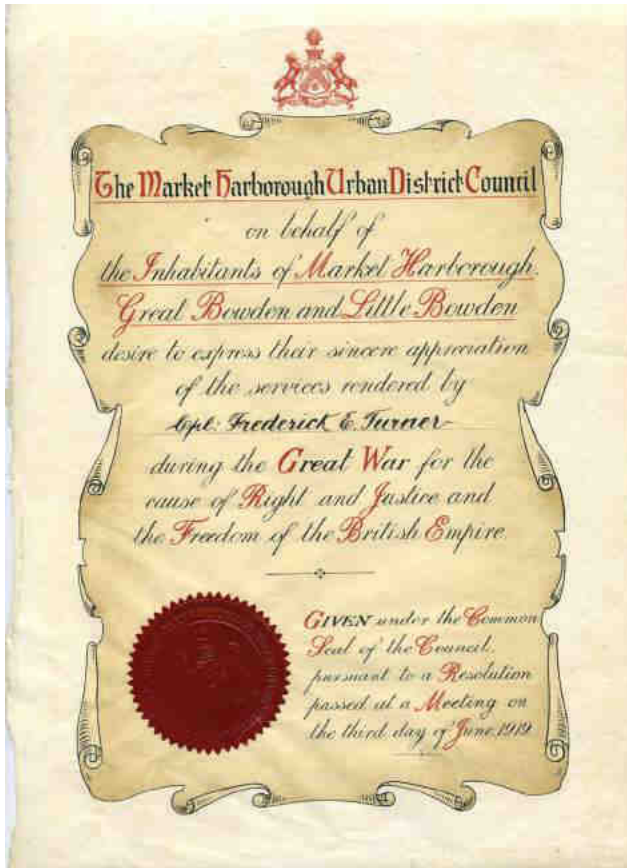 The Market Harborough Urban District Council
on behalf of
the Inhabitants of Market Harborough,
Great Bowden and Little Bowden
desire to express their sincere appreciation
of the services rendered by
Cpl: Frederick E. Turner
during the Great War for the
cause of Right and Justice and
the Freedom of the British Empire.
GIVEN under the Common
Seal of the Council,
pursuant to a Resolution
passed at a Meeting on
the third day of June, 1919